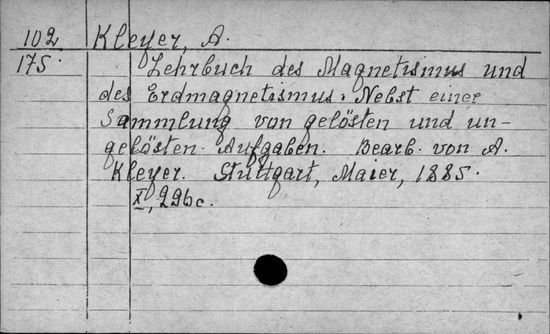 102 Kleyer, A.
175. Lehrbuch des Magnetismus und
des Erdmagnetismus. Nebst einer
Sammlung von gelösten und un-
gelösten Aufgaben. Bearb. von A.
Kleyer. Stuttgart, Maier, 1885.
X, 226 c.